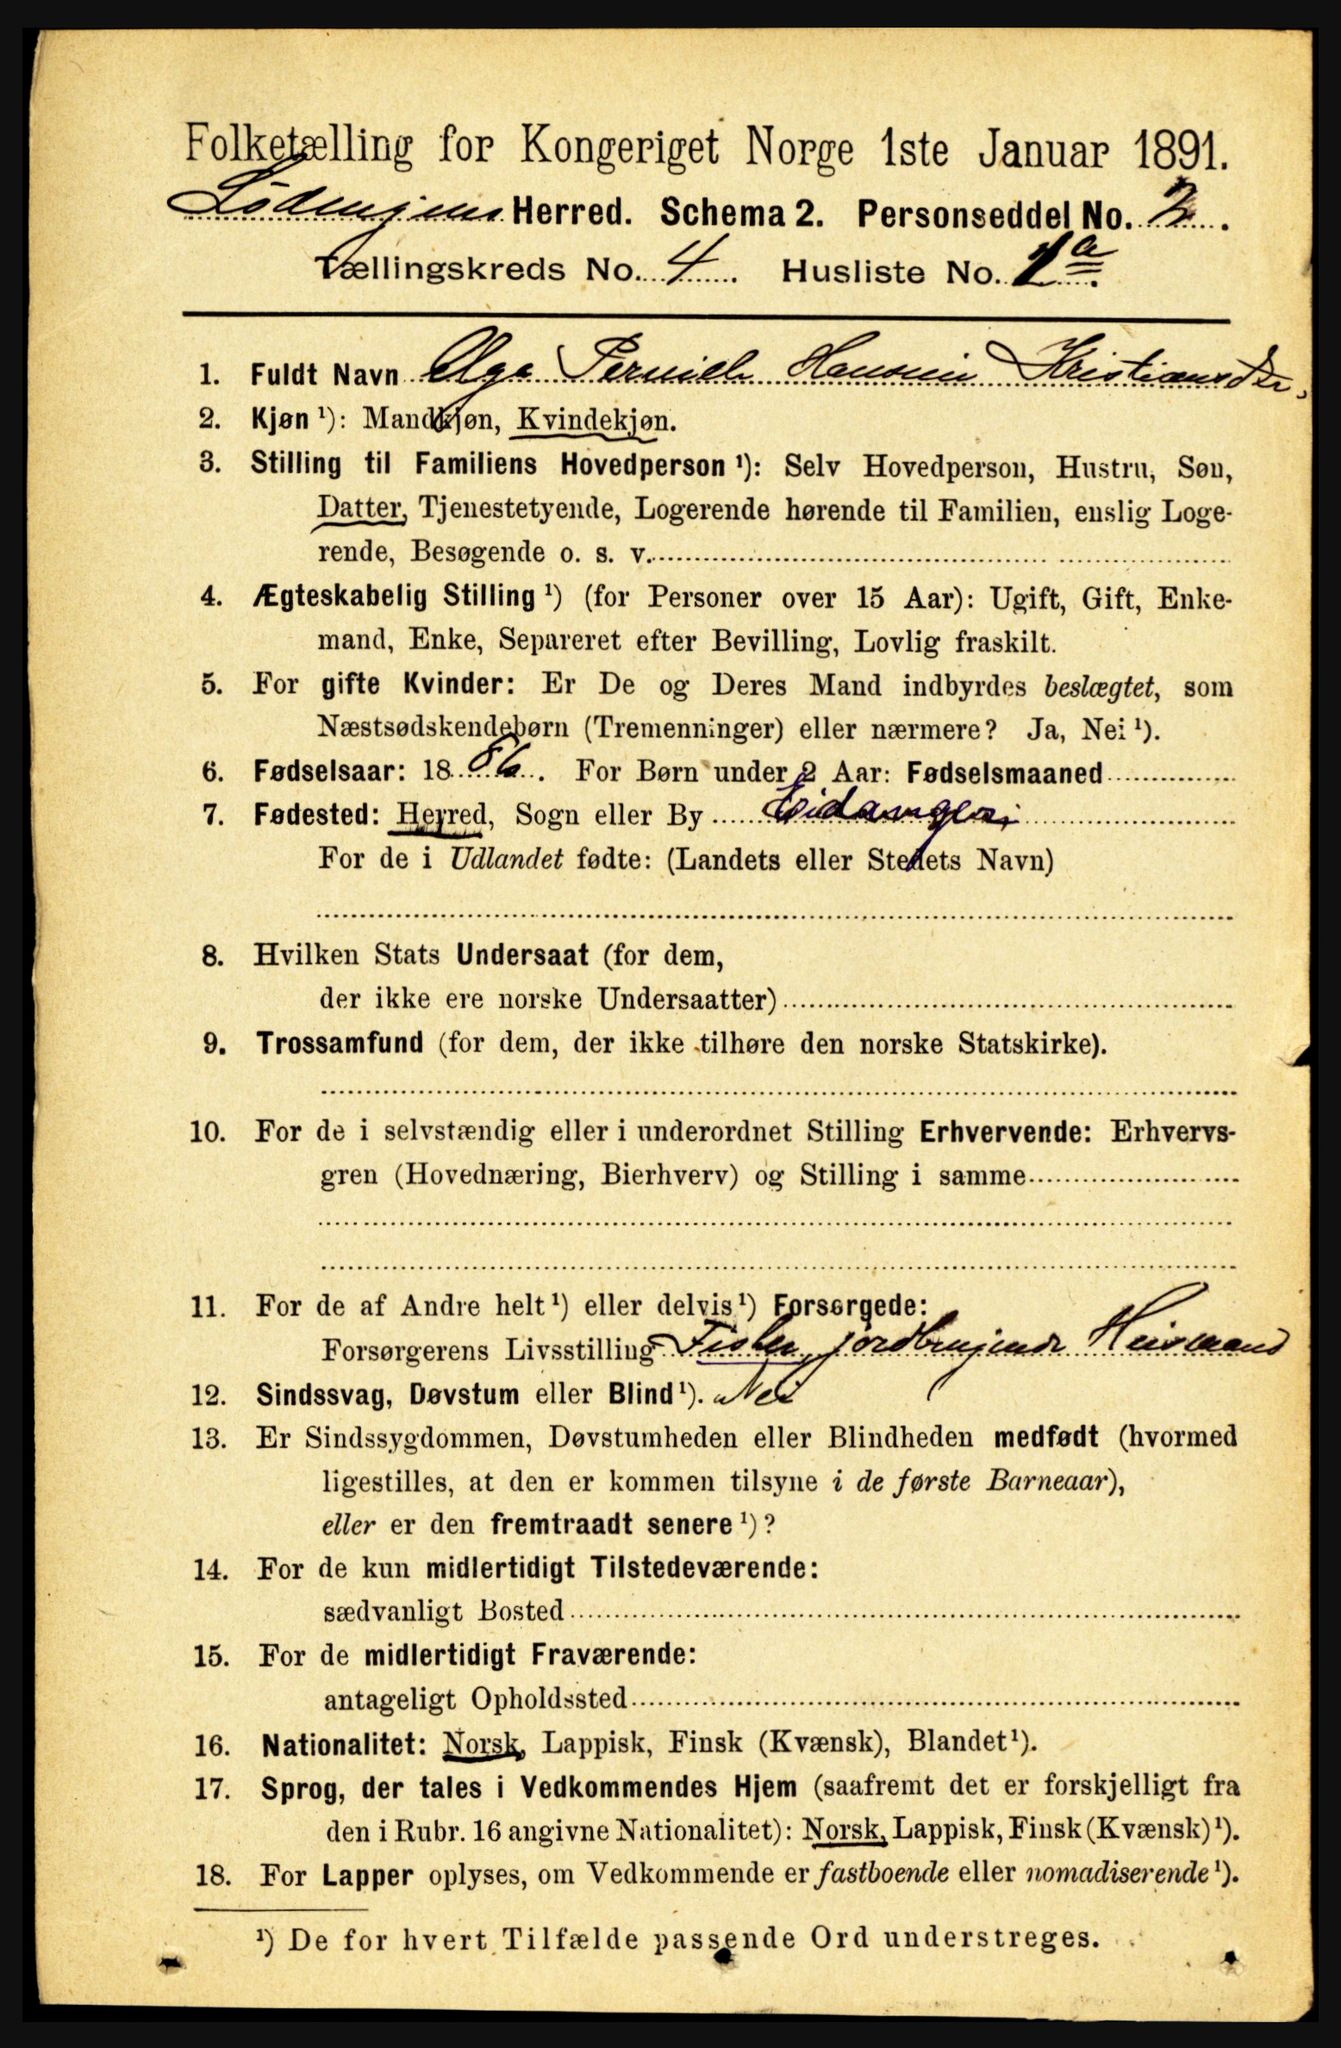 Folketælling for Kongeriget Norge 1ste Januar 1891.
Lødingens Herred. Schema 2. Personseddel No. 2.
Tællingskreds No. 4. Husliste No. 1a.
1. Fuldt Navn Olga Pernich Hansen Kristiansdtr.
2. Kjøn ¹): Mandkjøn, Kvindekjøn.
3. Stilling til Familiens Hovedperson ¹): Selv Hovedperson, Hustru, Søn,
Datter, Tjenestetyende, Logerende hørende til Familien, enslig Loge-
rende, Besøgende o. s. v.
4. Ægteskabelig Stilling ¹) (for Personer over 15 Aar): Ugift, Gift, Enke-
mand, Enke, Separeret efter Bevilling, Lovlig fraskilt.
5. For gifte Kvinder: Er De og Deres Mand indbyrdes beslægtet, som
Næstsødskendebørn (Tremenninger) eller nærmere? Ja, Nei ¹).
6. Fødselsaar: 1886. For Børn under 2 Aar: Fødselsmaaned
7. Fødested: Herred, Sogn eller By
For de i Udlandet fødte: (Landets eller Stedets Navn)
8. Hvilken Stats Undersaat (for dem,
der ikke ere norske Undersaatter)
9. Trossamfund (for dem, der ikke tilhøre den norske Statskirke).
10. For de i selvstændig eller i underordnet Stilling Erhvervende: Erhvervs-
gren (Hovednæring, Bierhverv) og Stilling i samme
11. For de af Andre helt ¹) eller delvis ¹) Forsørgede:
Forsørgerens Livsstilling Fisker, jordbrugende Huusmand
12. Sindssvag, Døvstum eller Blind ¹). Nei
13. Er Sindssygdommen, Døvstumheden eller Blindheden medfødt (hvormed
ligestilles, at den er kommen tilsyne i de første Barneaar),
eller er den fremtraadt senere ¹)?
14. For de kun midlertidigt Tilstedeværende:
sædvanligt Bosted
15. For de midlertidigt Fraværende:
antageligt Opholdssted
16. Nationalitet: Norsk, Lappisk, Finsk (Kvænsk), Blandet ¹).
17. Sprog, der tales i Vedkommendes Hjem (saafremt det er forskjelligt fra
den i Rubr. 16 angivne Nationalitet): Norsk, Lappisk, Finsk (Kvænsk) ¹).
18. For Lapper oplyses, om Vedkommende er fastboende eller nomadiserende ¹).
¹) De for hvert Tilfælde passende Ord understreges.